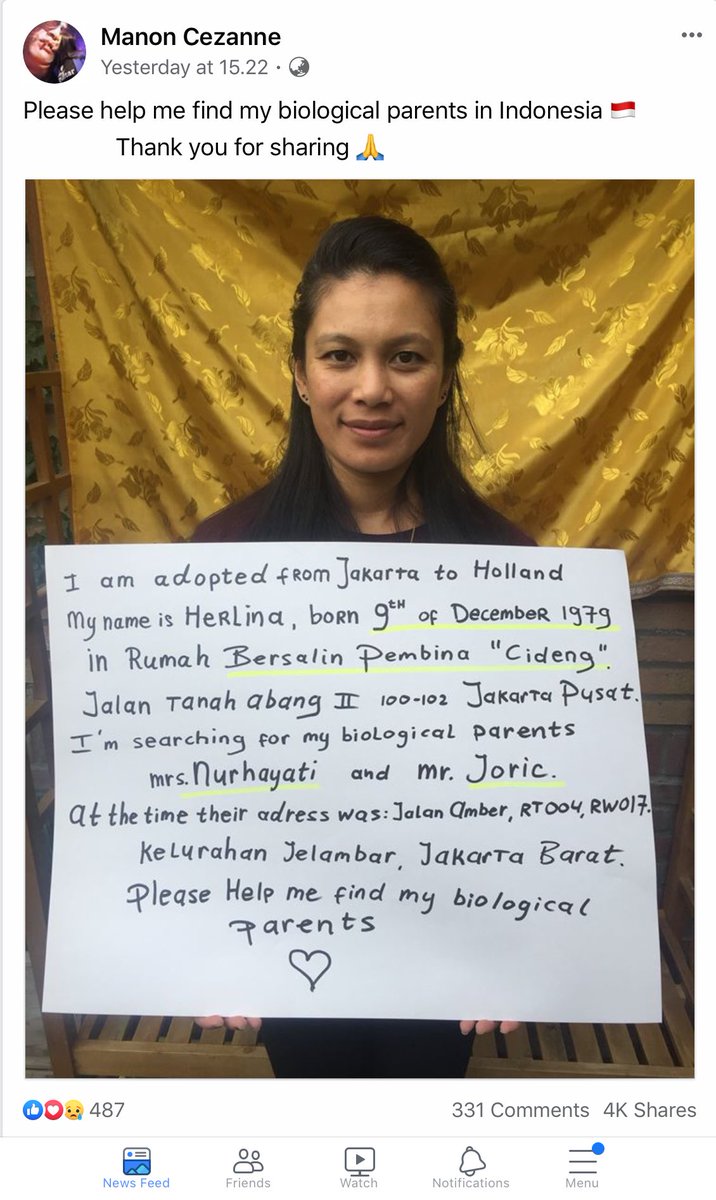 Manon Cezanne
Yesterday at 15.22 ·
Please help me find my biological parents in Indonesia 🇮🇩
Thank you for sharing 🙏
I am adopted from Jakarta to Holland
My name is Herlina, born 9TH of December 1979
in Rumah Bersalin Pembina "Cideng".
Jalan Tanah abang II 100-102 Jakarta Pusat.
I'm searching for my biological parents
mrs. Nurhayati and mr. Joric.
At the time their adress was: Jalan Amber, RT004, RW017.
Kelurahan Jelambar, Jakarta Barat.
Please Help me find my biological
parents
487 331 Comments 4K Shares
News Feed Friends Watch Notifications Menu